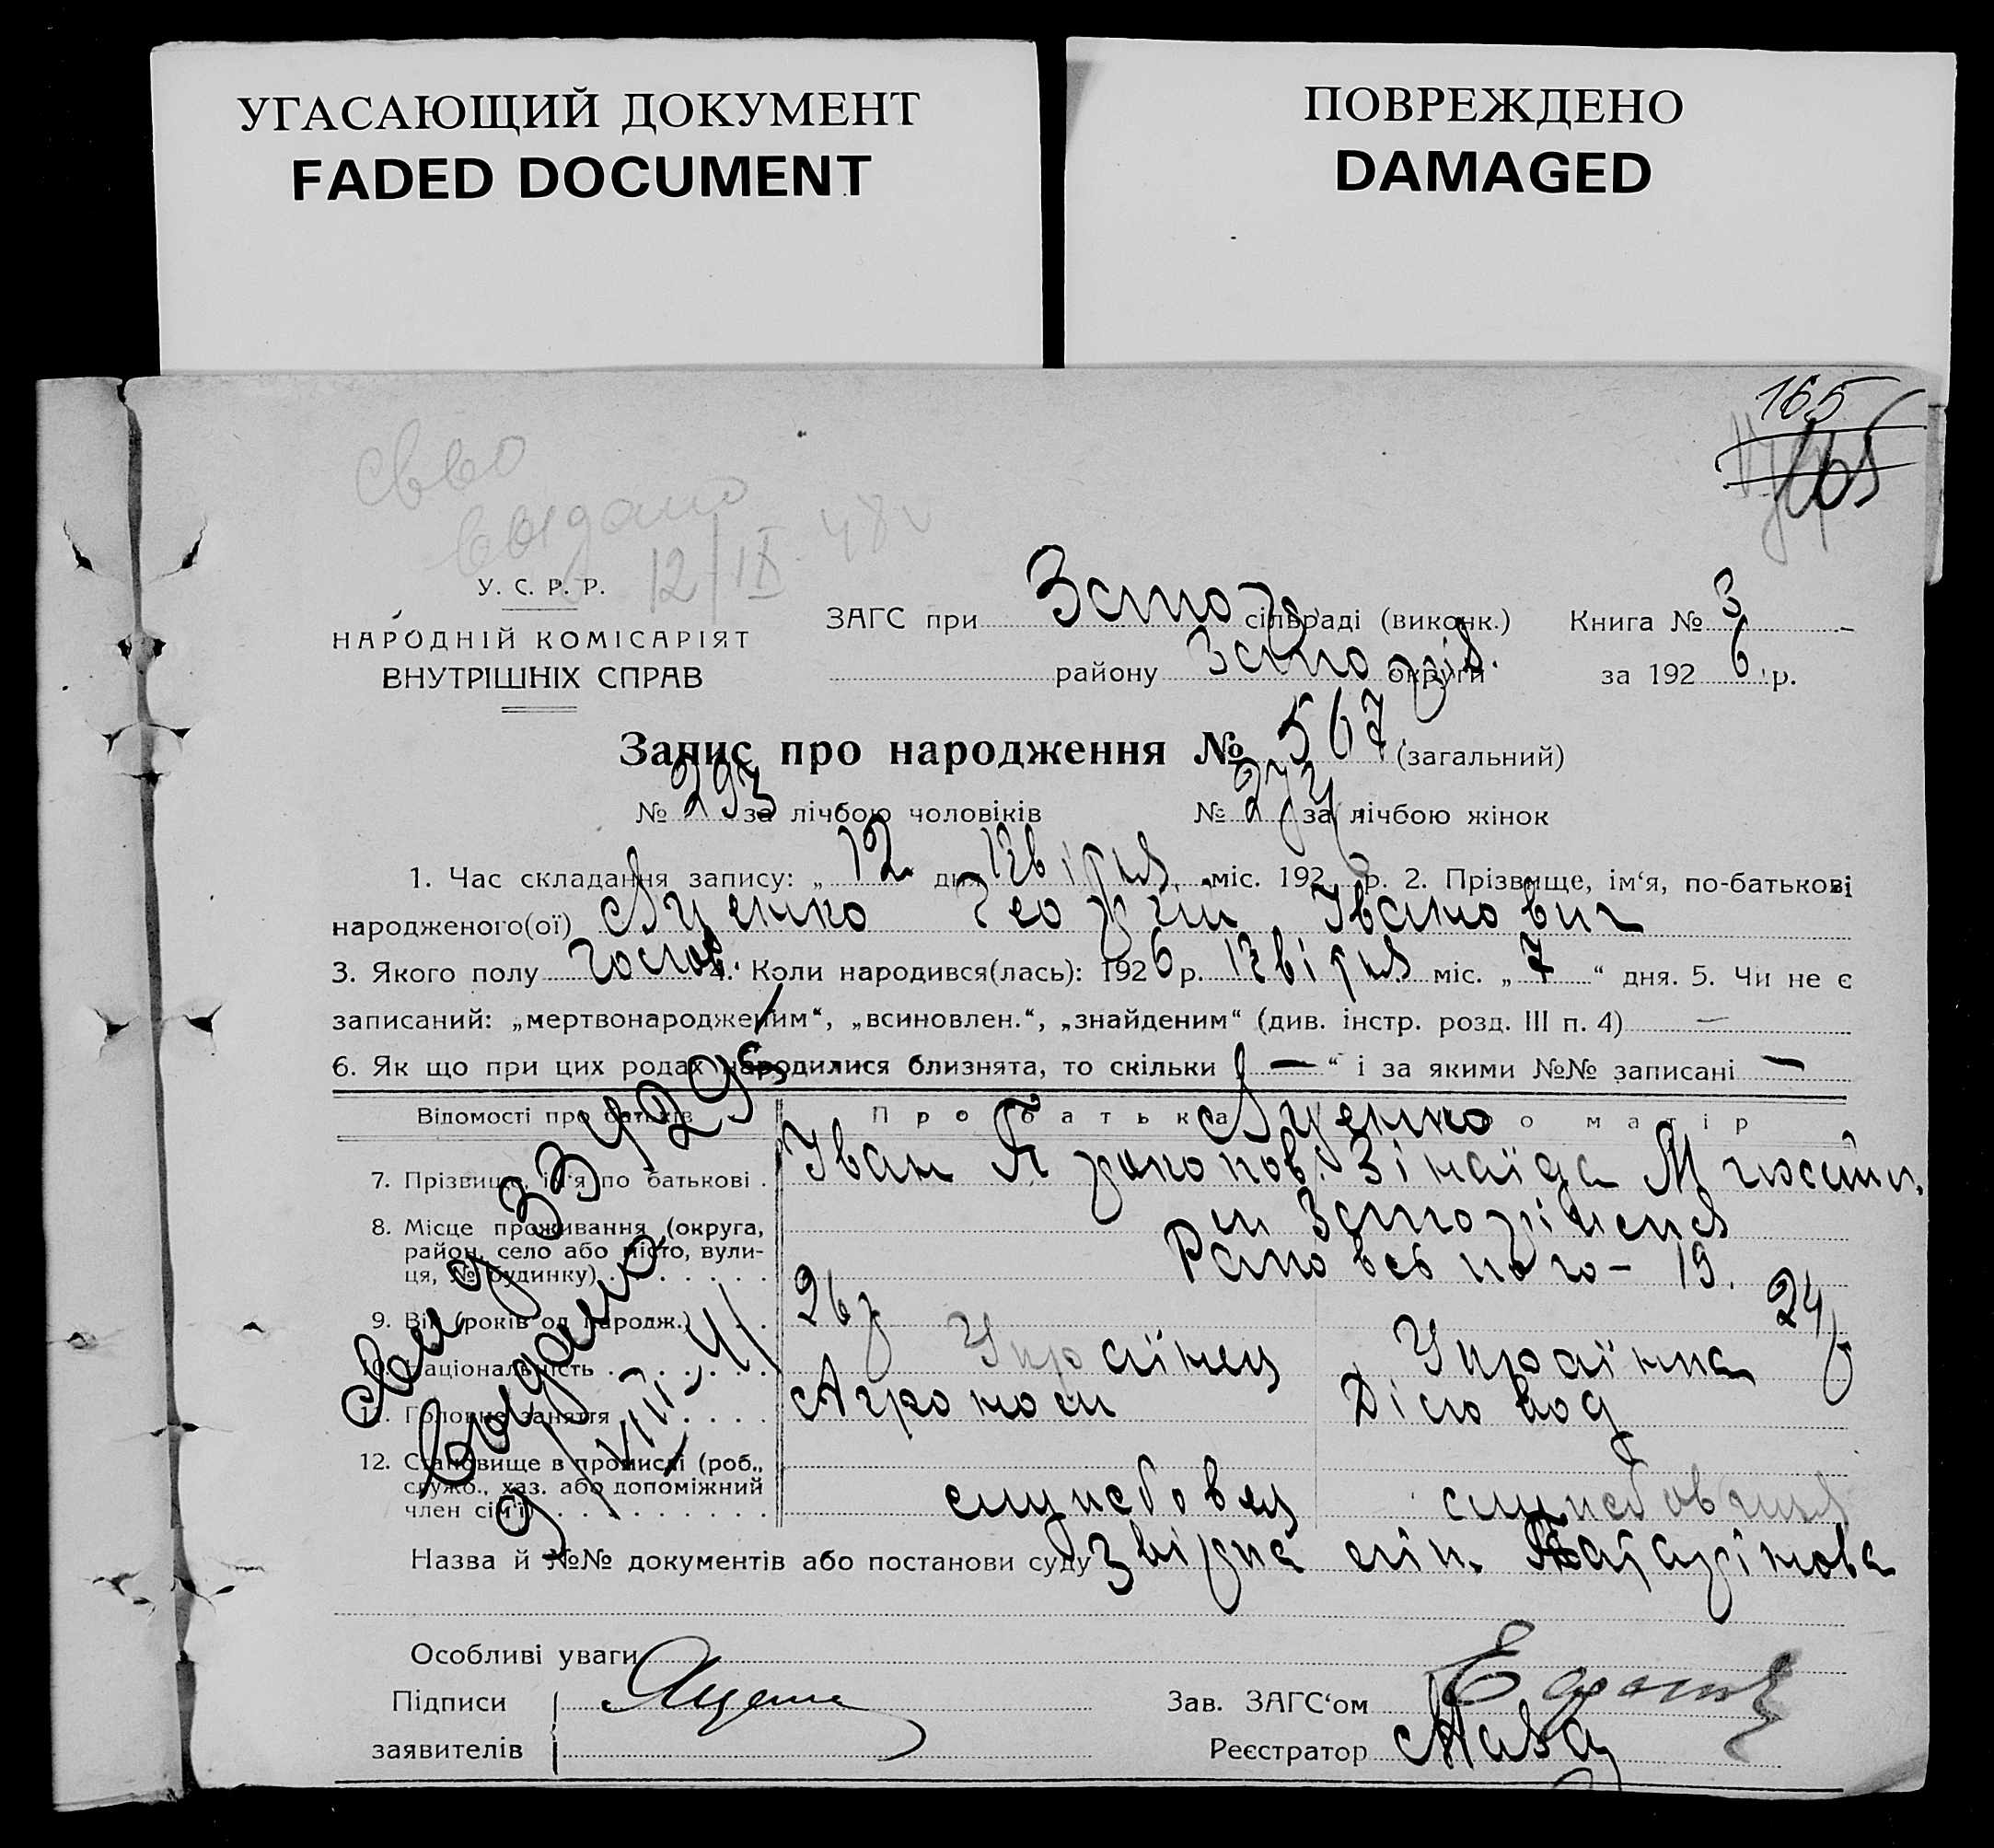 УГАСАЮЩИЙ ДОКУМЕНТ
FADED DOCUMENT
ПОВРЕЖДЕНО
DAMAGED
165
165
Св-во
выдано
12/IX 48
У. С. Р. Р.
НАРОДНІЙ КОМІСАРІЯТ
ВНУТРІШНІХ СПРАВ
ЗАГС при Запо сільраді (виконк.) Книга № 3
району Запоріз. округи за 1926 р.
Запис про народження № 567 (загальний)
№ 293 за лічбою чоловіків № 274 за лічбою жінок
1. Час складання запису: „ 12 дня квітня міс. 1926 р. 2. Прізвище, ім‘я, по-батькові
народженого(ої) Луценко Георгій Іванович
3. Якого полу чолов. 4. Коли народився(лась): 1926 р. квітня міс. „ 7 “ дня. 5. Чи не є
записаний: „мертвонародженим“, „всиновлен.“, „знайденим“ (див. інстр. розд. III п. 4) —
6. Як що при цих родах народилися близнята, то скільки „ — “ і за якими №№ записані —
Відомості про батьків Про батька Про матір
Луценко
7. Прізвище, ім‘я по батькові . Іван Прокопов. Зінаїда
8. Місце проживання (округа,
район, село або місто, вули-
ця, № будинку) . . . . . . .
м Запоріжжя
19.
9. Вік (років од народж.) . . . 26 р 24 р
10. Національність . . . . . . Українец Українка
11. Головне заняття . . . . . . Агроном Діловод
12. Становище в промислі (роб.,
служб., хаз. або допоміжний
член сім‘ї) . . . . . . . . . службовец службовиця
Назва й №№ документів або постанови суду Звірка
Особливі уваги
Підписи
заявителів
Зав. ЗАГС‘ом
Реєстратор
выдано
9/VIII-41